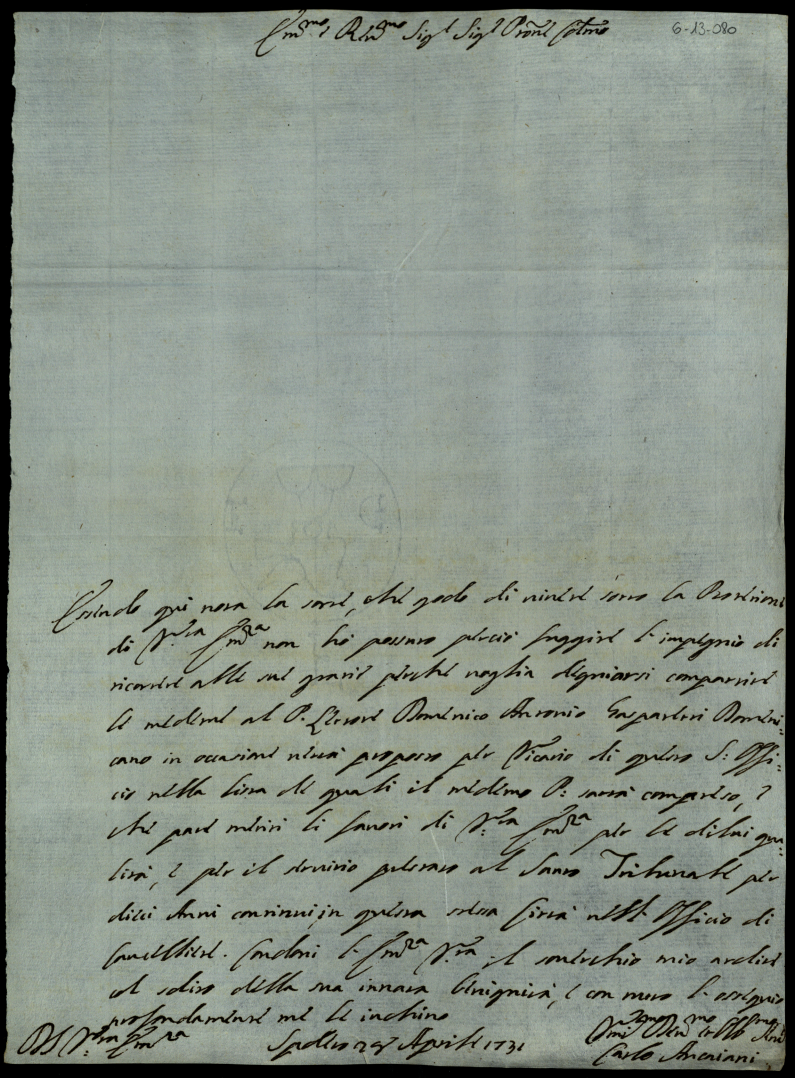 Em.mo e Rev.mo Sig.r Sig.r Pron.e Col.mo
6-13-080
Essendo qui nota la sorte, che godo di vivere sotto la Protezione
di V.ra Em.za non ho possuto perciò fuggire l'impegno di
ricorrere alle sue grazie perché voglia degniarsi compartire
le medeme al P. Lettore Domenico Antonio Gasparteri Domeni:
cano in occasione venisse proposto per Vicario di questo S: Offi:
cio nella lista de quali il medemo P: sarrà compreso, e
che pare meriti li favori di V.ra Em.za per le di lui qua:
lità, e per il servizio prestato al Santo Tribunale per
dieci Anni continui, in questa stessa Città nell'Officio di
Cancelliere. Condoni l'Em.za V.ra il soverchio mio ardire
al solito della sua innata benignità, e con tutto l'ossequio
profondamente me le inchino
D V.ra Em.za Spoleto 29 Aprile 1731
Carlo Ancaiani